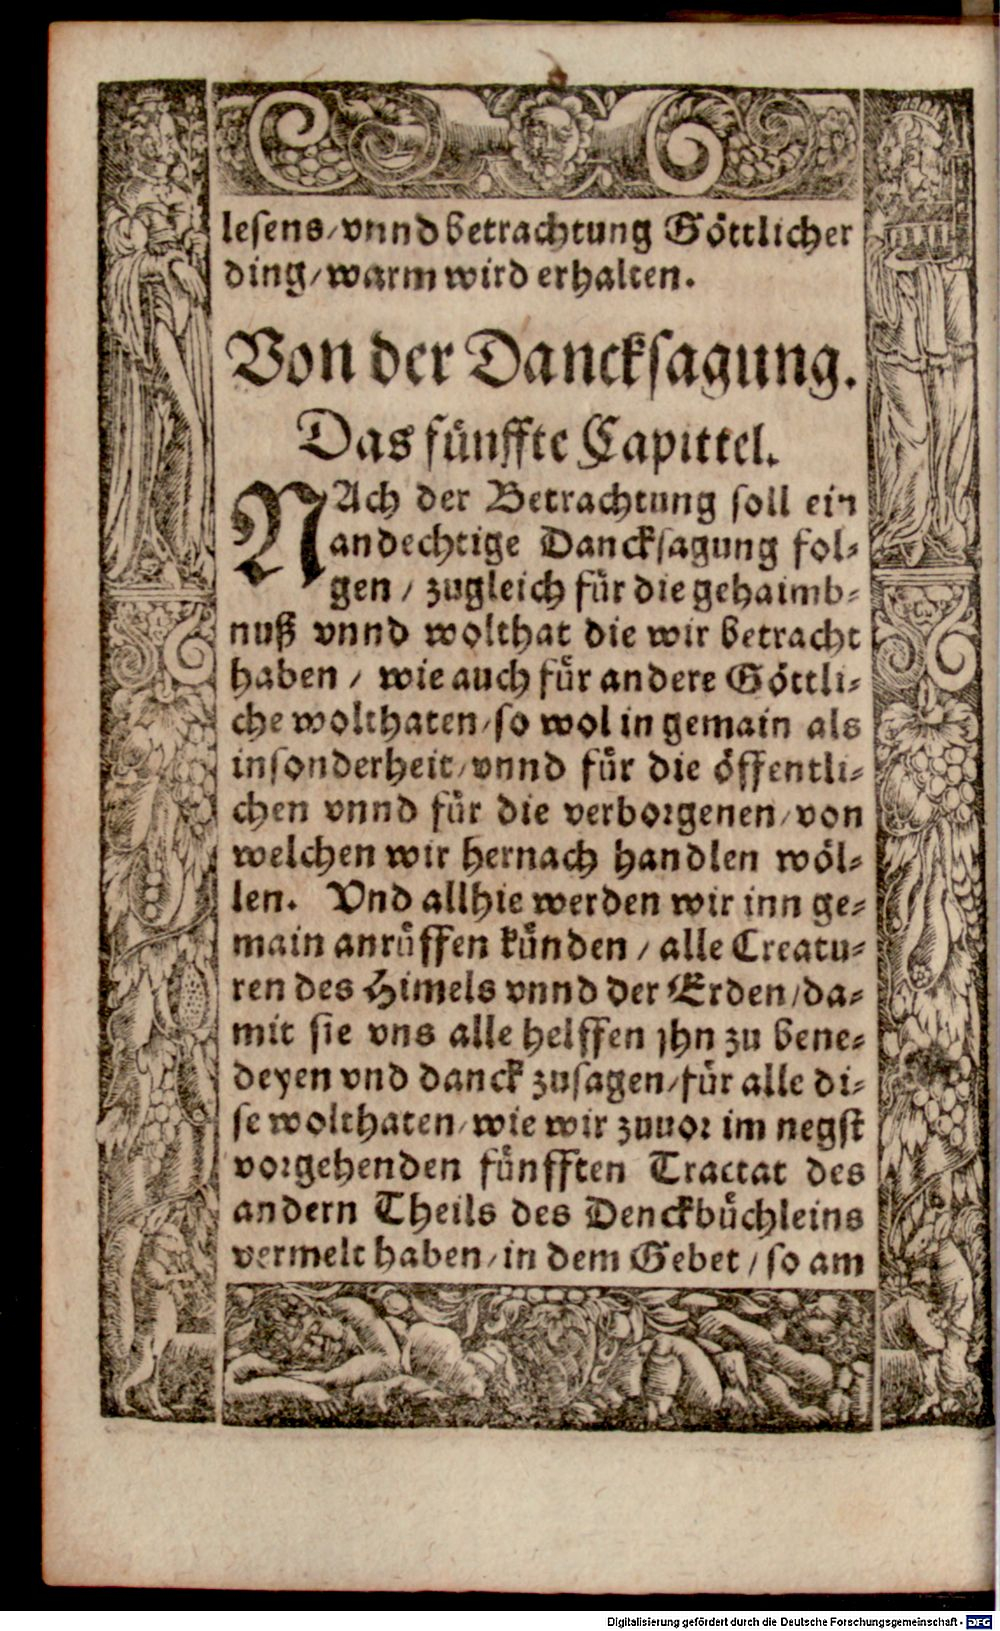 lesens/vnnd betrachtung Göttlicher
ding/warm wird erhalten.
Von der Dancksagung.
Das fünffte Capittel.
NAch der Betrachtung soll ein
andechtige Dancksagung fol-
gen / zugleich für die gehaimb-
nuß vnnd wolthat die wir betracht
haben / wie auch für andere Göttli-
che wolthaten/so wol in gemain als
insonderheit/vnnd für die öffentli-
chen vnnd für die verborgenen/von
welchen wir hernach handlen wöl-
len. Vnd allhie werden wir inn ge-
main anrüffen künden / alle Creatu-
ren des Himels vnnd der Erden/da-
mit sie vns alle helffen jhn zu bene-
deyen vnd danck zusagen/für alle di-
se wolthaten/wie wir zuuor im negst
vorgehenden fünfften Tractat des
andern Theils des Denckbüchleins
vermelt haben/in dem Gebet / so am
Digitalisierung gefördert durch die Deutsche Forschungsgemeinschaft - DFG